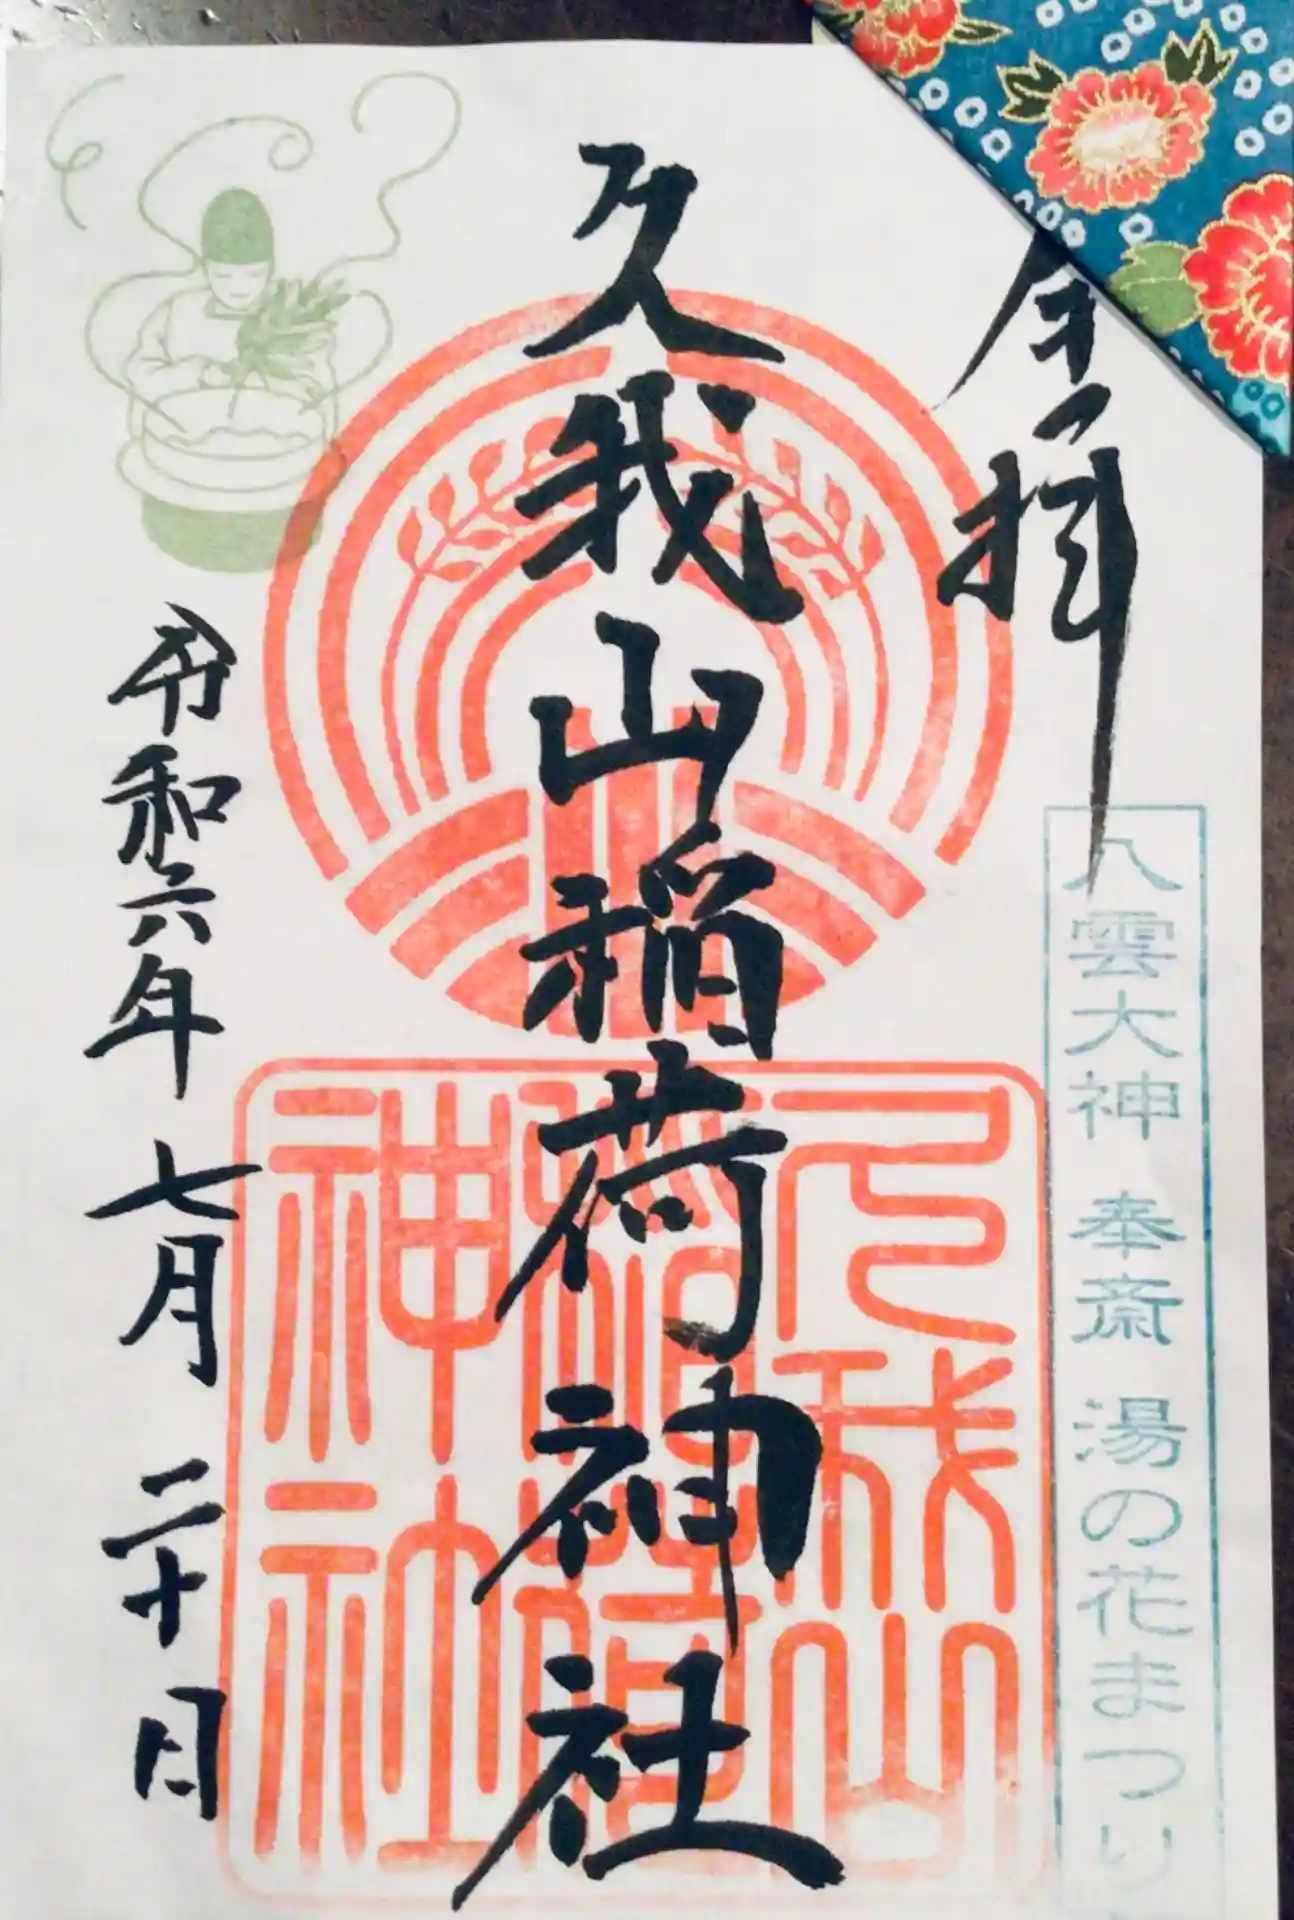 奉拝
八雲大神 奉斎 湯の花まつり
久我山稲荷神社
久我山
稲荷
神社
令和六年 七月 二十日